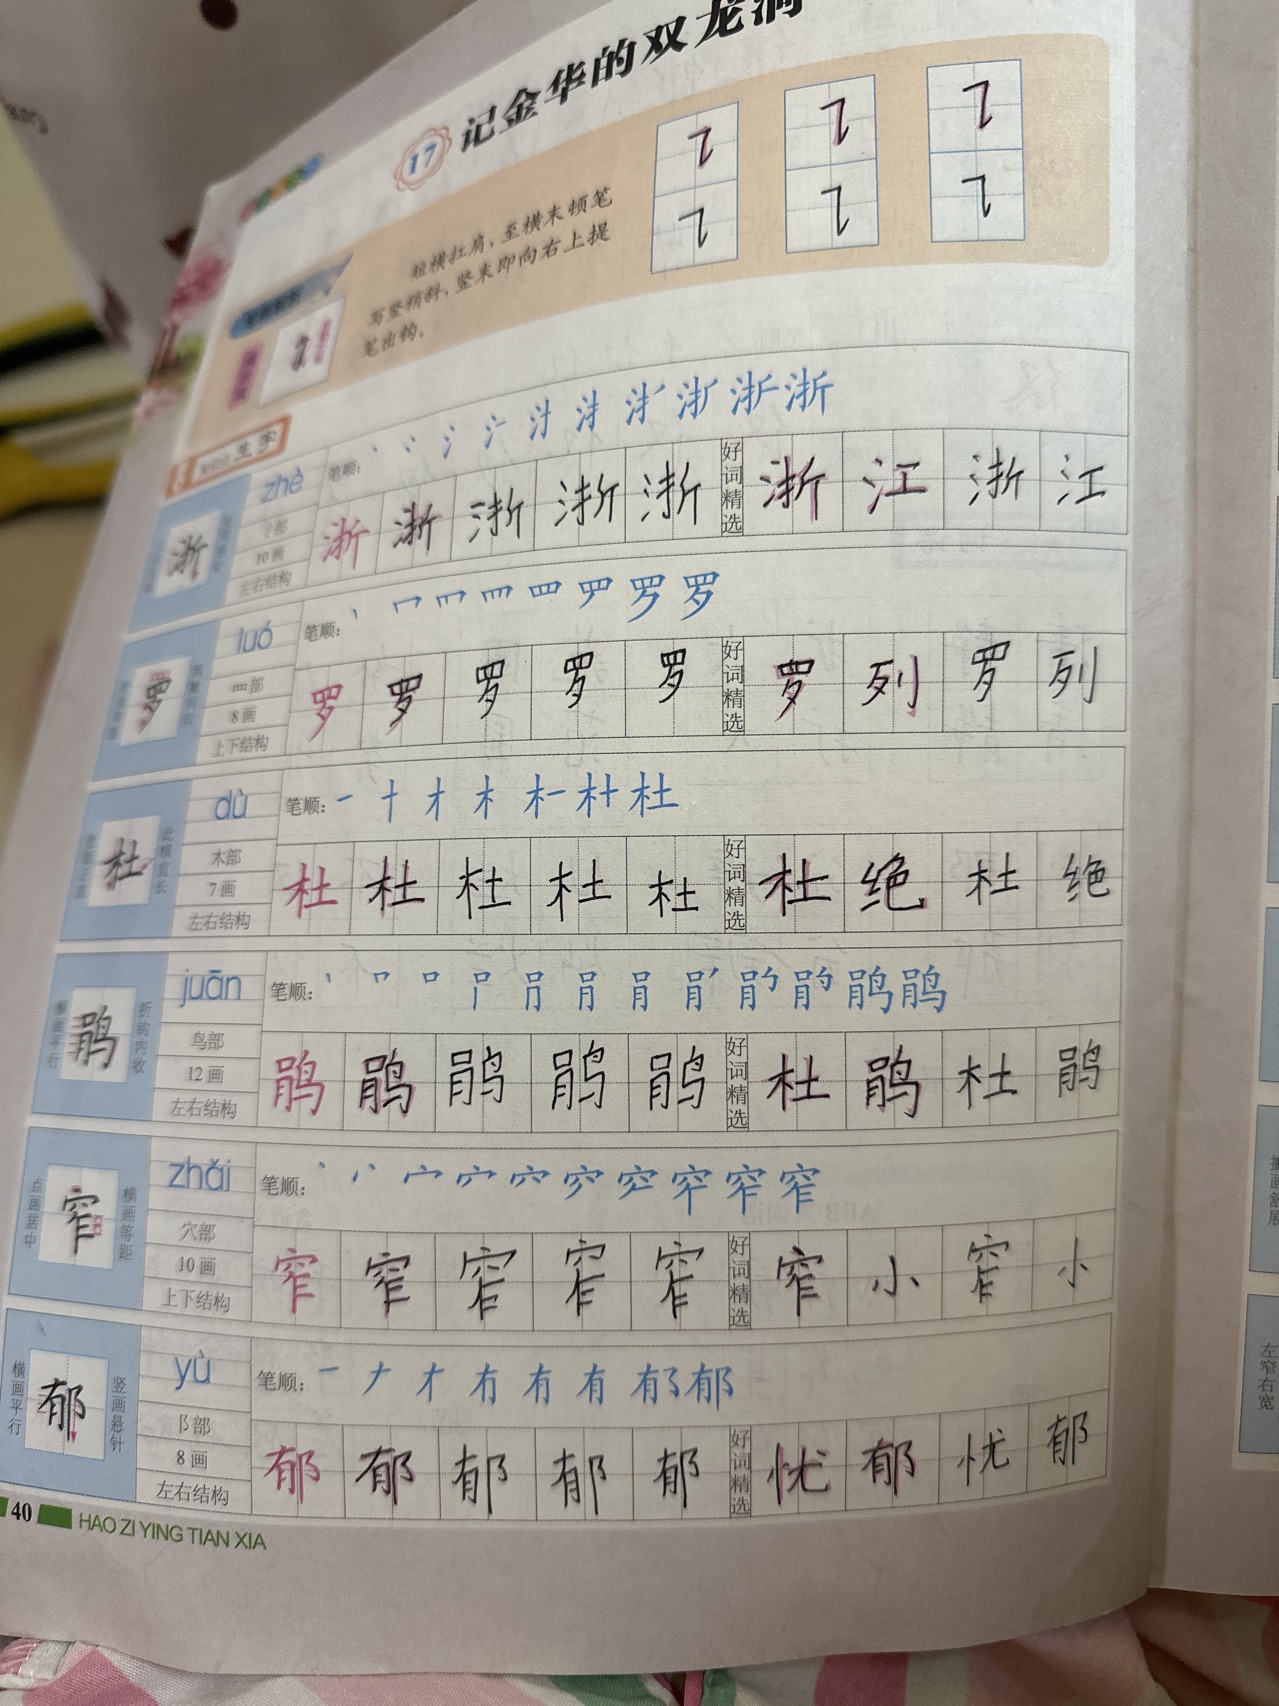 17 记金华的双龙洞
短横扛肩，至横末顿笔
写竖稍斜，竖末即向右上提
笔出钩。
生字
zhè 笔顺： 浙
浙 氵部 10画 左右结构
浙 浙 浙 浙 浙 好词精选 浙 江 浙 江
luó 笔顺： 罗
罗 罒部 8画 上下结构
罗 罗 罗 罗 罗 好词精选 罗 列 罗 列
dù 笔顺： 一 十 才 木 杜
杜 此横宜长 木部 7画 左右结构
杜 杜 杜 杜 杜 好词精选 杜 绝 杜 绝
juān 笔顺： 鹃
横画平行 鹃 折钩内收 鸟部 12画 左右结构
鹃 鹃 鹃 鹃 鹃 好词精选 杜 鹃 杜 鹃
zhǎi 笔顺： 窄
点画居中 窄 横画等距 穴部 10画 上下结构
窄 窄 窄 窄 窄 好词精选 窄 小 窄 小
yù 笔顺： 一 ナ 有 郁
横画平行 郁 竖画悬针 阝部 8画 左右结构
郁 郁 郁 郁 郁 好词精选 忧 郁 忧 郁
40 HAO ZI YING TIAN XIA
左窄右宽